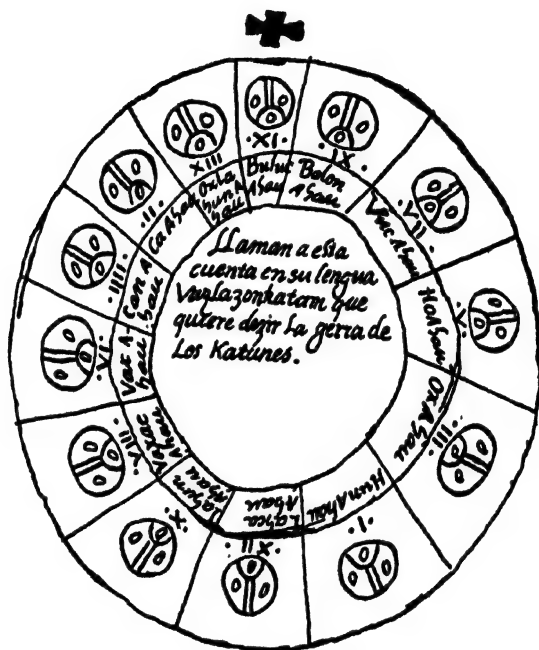 Llaman a esta
cuenta en su lengua
Vazlazonkatom que
quiere dezir La gerra de
Los Katunes.
·XI·
Buluc
Ahau
·IX·
Bolon
Ahau
·VII·
Vuc Ahau
·V·
Ho Ahau
·III·
Ox Ahau
·I·
Hun Ahau
·XII·
Lahca
Ahau
·X·
Lahun
Ahau
·VIII·
Vaxac
Ahau
·VI·
Vac A
hau
·IIII·
Can A
hau
·II·
Ca Ahau
XIII
Oxla
hun A
hau